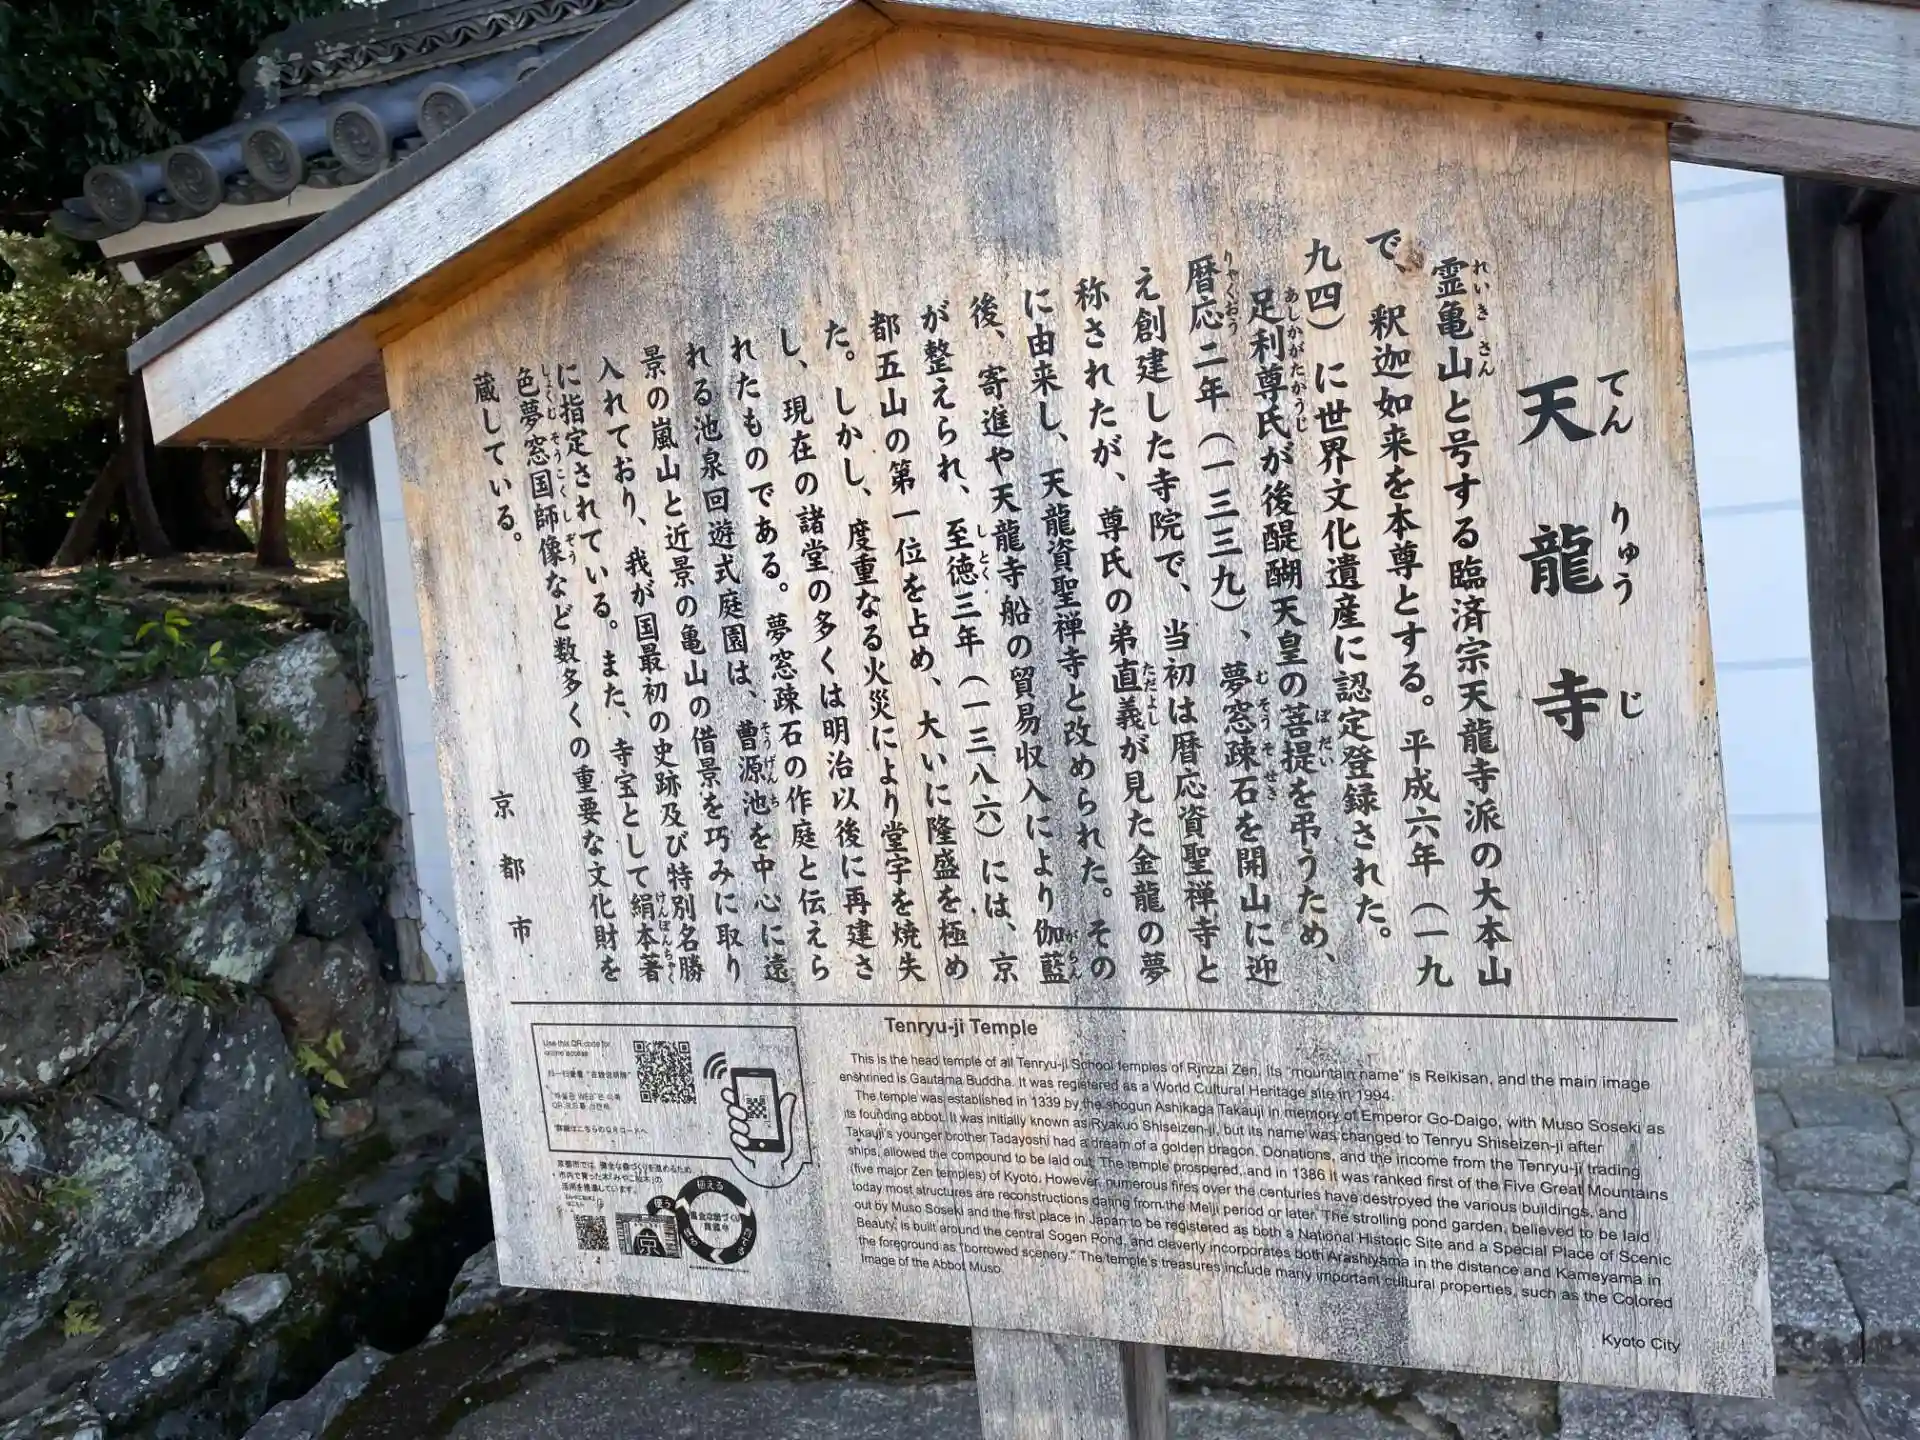 天龍寺
てんりゅうじ
霊亀山と号する臨済宗天龍寺派の大本山
れいきさん
で、釈迦如来を本尊とする。平成六年（一九
九四）に世界文化遺産に認定登録された。
足利尊氏が後醍醐天皇の菩提を弔うため、
あしかがたかうじ
ぼだい
暦応二年（一三三九）、夢窓疎石を開山に迎
りゃくおう
むそうそせき
え創建した寺院で、当初は暦応資聖禅寺と
称されたが、尊氏の弟直義が見た金龍の夢
ただよし
に由来し、天龍資聖禅寺と改められた。その
後、寄進や天龍寺船の貿易収入により伽藍
がらん
が整えられ、至徳三年（一三八六）には、京
しとく
都五山の第一位を占め、大いに隆盛を極め
た。しかし、度重なる火災により堂宇を焼失
し、現在の諸堂の多くは明治以後に再建さ
れたものである。夢窓疎石の作庭と伝えら
れる池泉回遊式庭園は、曹源池を中心に遠
そうげんち
景の嵐山と近景の亀山の借景を巧みに取り
入れており、我が国最初の史跡及び特別名勝
に指定されている。また、寺宝として絹本著
けんぽんちゃく
色夢窓国師像など数多くの重要な文化財を
しょくむそうこくしぞう
蔵している。
京都市
Tenryu-ji Temple
This is the head temple of all Tenryu-ji School temples of Rinzai Zen. Its "mountain name" is Reikisan, and the main image
enshrined is Gautama Buddha. It was registered as a World Cultural Heritage site in 1994.
The temple was established in 1339 by the shogun Ashikaga Takauji in memory of Emperor Go-Daigo, with Muso Soseki as
its founding abbot. It was initially known as Ryakuo Shiseizen-ji, but its name was changed to Tenryu Shiseizen-ji after
Takauji's younger brother Tadayoshi had a dream of a golden dragon. Donations, and the income from the Tenryu-ji trading
ships, allowed the compound to be laid out. The temple prospered, and in 1386 it was ranked first of the Five Great Mountains
(five major Zen temples) of Kyoto. However, numerous fires over the centuries have destroyed the various buildings, and
today most structures are reconstructions dating from the Meiji period or later. The strolling pond garden, believed to be laid
out by Muso Soseki and the first place in Japan to be registered as both a National Historic Site and a Special Place of Scenic
Beauty, is built around the central Sogen Pond, and cleverly incorporates both Arashiyama in the distance and Kameyama in
the foreground as "borrowed scenery." The temple's treasures include many important cultural properties, such as the Colored
Image of the Abbot Muso.
Kyoto City
Use this QR code for
online access
詳細はこちらのQRコードへ
京都市では、健全な森づくりを進めるため
市内で育った木「みやこ杣木」の
活用を推進しています。
植える
使う
京